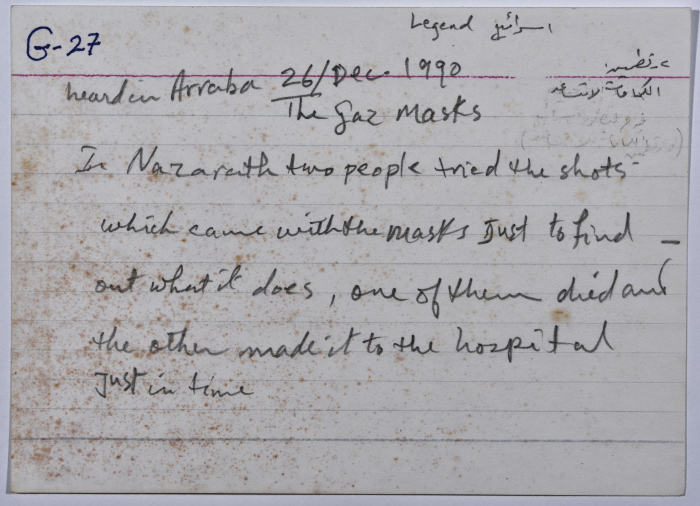 G-27
Legend اسرائيل
heard in Arraba 26/Dec. 1990
The gaz masks
In Nazarath two people tried the shots
which came with the masks Just to find
out what it does, one of them died and
the other made it to the hospital
Just in time